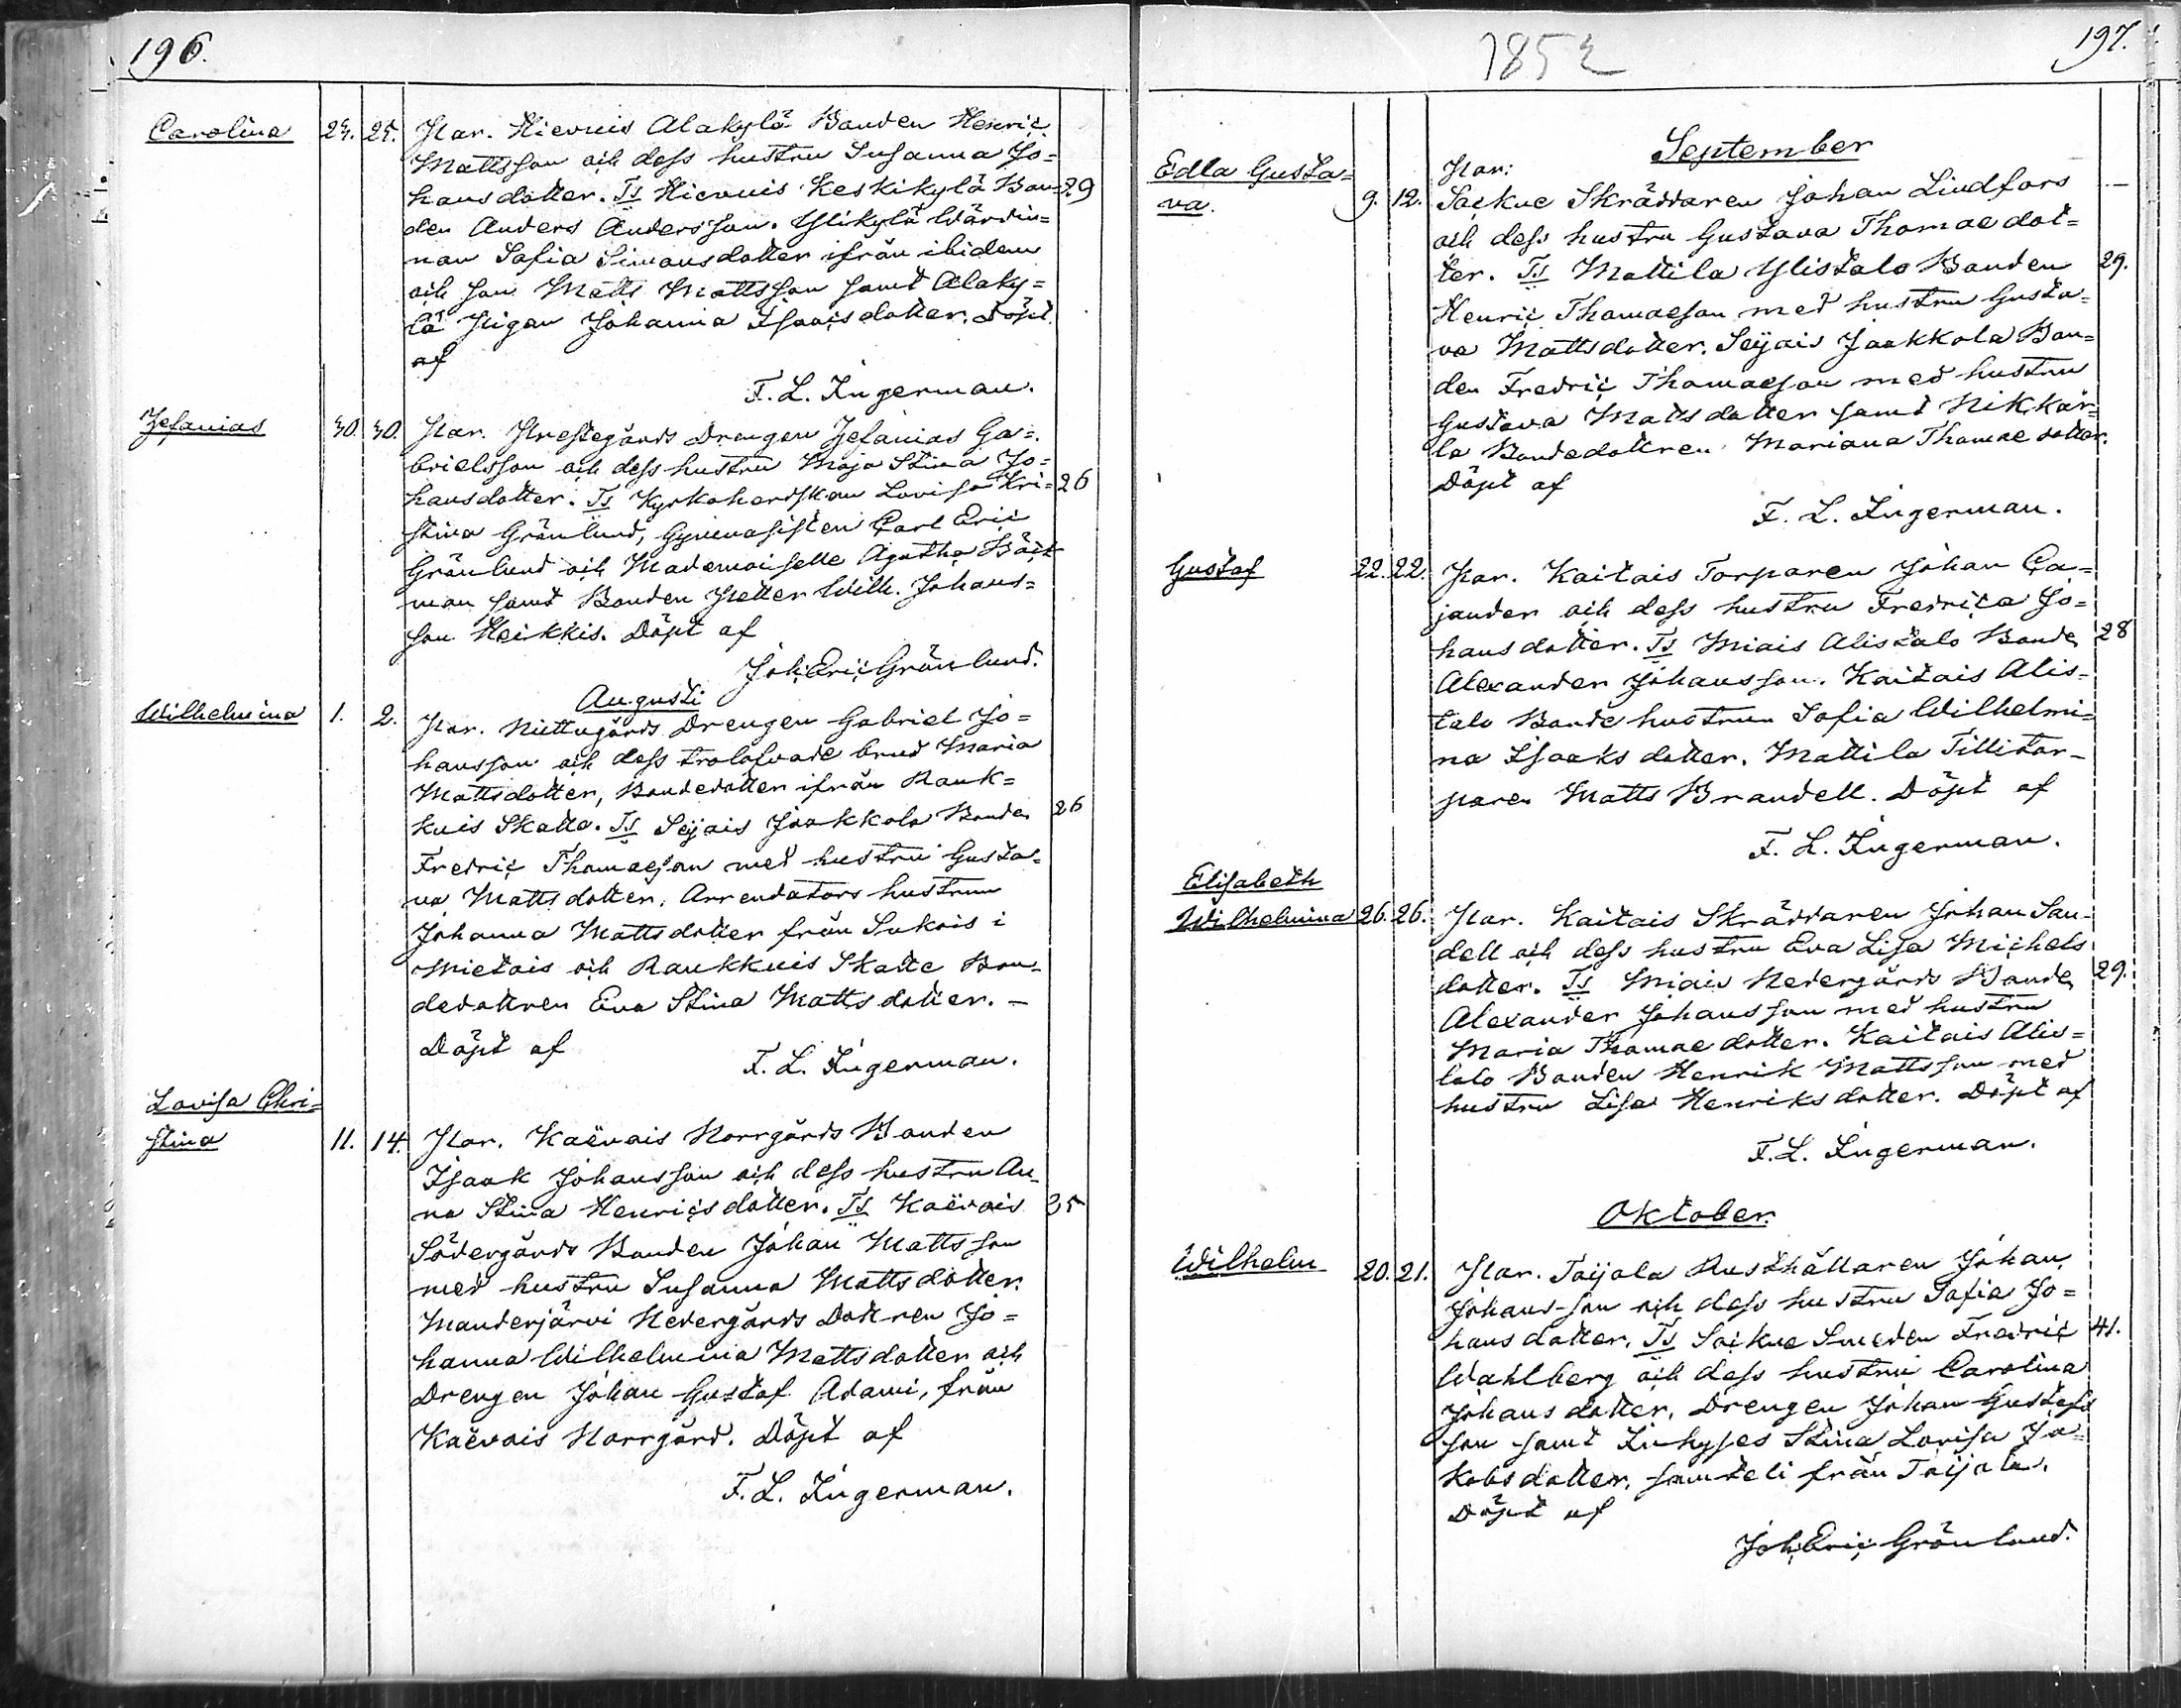 196.
Carolina 24. 25. Par. Hievuis Alakylä Bonden Henric
Mattsson och dess hustru Susanna Jo=
hansdotter. Ts Hievuis Keskikylä Bon= 29
den Anders Andersson. Ylikylä Wärdin=
nan Sofia Simonsdotter ifrån ibidem
och son Matts Mattsson samt Alaky=
lä Pigan Johanna Isaacsdotter. Döpt
af
F. L. Ingerman.
Zefanias 30. 30. Par. Prestegårds Drengen Zefanias Ga=
brielsson och dess hustru Maja Stina Jo=
hansdotter. Ts Kyrkoherdskan Lovisa Kri= 26
stina Grönlund, Gymnasisten Carl Eric
Grönlund och Mademoiselle Agatha Bäck=
man samt Bonden Petter Wilh. Johans=
son Heikkis. Döpt af
Joh. Eric Grönlund.
Augusti
Wilhelmina 1. 2. Par. Nittugårds Drengen Gabriel Jo=
hansson och dess trolofvade brud Maria
Mattsdotter, Bondedotter ifrån Rauk=
kuis Skatta. Ts Seijais Jaakkola Bonden 26
Fredric Thomaeson med hustru Gusta=
va Mattsdotter. Arrendators hustrun
Johanna Mattsdotter från Sukois i
Mietois och Raukkuis Skatte Bon=
dedottren Eva Stina Mattsdotter. –
Döpt af
F. L. Ingerman.
Lovisa Chri=
stina 11. 14. Par. Kaëvais Norrgårds Bonden
Isaak Johansson och dess hustru An=
na Stina Henricsdotter. Ts Kaëvais 35
Södergårds Bonden Johan Mattsson
med hustru Susanna Mattsdotter.
Manderjärvi Nedergårds Dottren Jo=
hanna Wilhelmina Mattsdotter och
Drengen Johan Gustaf Adami, från
Kaëvais Norrgård. Döpt af
F. L. Ingerman.
1852
197.
September
Edla Gusta=
va. 9. 12. Par:
Saekue Skräddaren Johan Lindfors —
och dess hustru Gustava Thomae dot=
ter. Ts Mattila Ylistalo Bonden 29.
Henric Thomaeson med hustru Gusta=
va Mattsdotter. Seijais Jaakkola Bon=
den Fredric Thomaeson med hustru
Gustava Mattsdotter samt Nikkär=
la Bondedottren Mariana Thomae dotter.
Döpt af
F. L. Ingerman.
Gustaf 22. 22. Par. Kaitais Torparen Johan Ca=
jander och dess hustru Fredrica Jo=
hansdotter. Ts Miais Alistalo Bonde 28
Alexander Johansson. Kaitais Alis=
talo Bonde hustrun Sofia Wilhelmi=
na Isaaksdotter. Mattila Tillitor=
paren Matts Brandell. Döpt af
F. L. Ingerman.
Elisabeth
Wilhelmina 26. 26. Par. Kaitais Skräddaren Johan San=
dell och dess hustru Eva Lisa Michels
dotter. Ts Miais Nedergårds Bonde 29.
Alexander Johansson med hustru
Maria Thomae dotter. Kaitais Alis=
talo Bonden Henrik Mattsson med
hustru Lisa Henriksdotter. Döpt af
F. L. Ingerman.
Oktober.
Wilhelm 20. 21. Par. Taijala Rusthållaren Johan
Johans-son och dess hustru Sofia Jo=
hansdotter. Ts Saekue Smeden Fredric 41.
Wahlberg och dess hustru Carolina
Johansdotter, Drengen Johan Gustafs
son samt Inhyses Stina Lovisa Ja=
kobsdotter, samteli från Taijala.
Döpt af
Joh. Eric Grönlund.